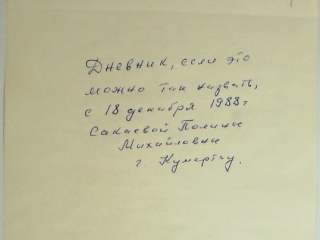 Дневник, если это
можно так назвать,
с 18 декабря 1988г
Сакаевой Полины
Михайловны
г. Кумертау.